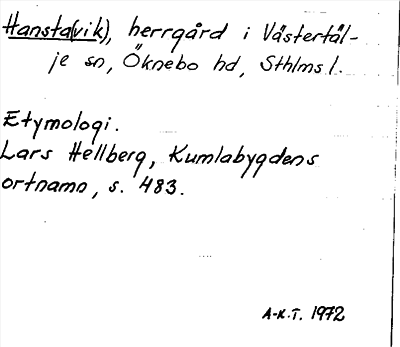 Hansta(vik), herrgård i Västertäl-
je sn, Öknebo hd, Sthlms l.
Etymologi.
Lars Hellberg, Kumlabygdens
ortnamn, s. 483.
A-K.T. 1972